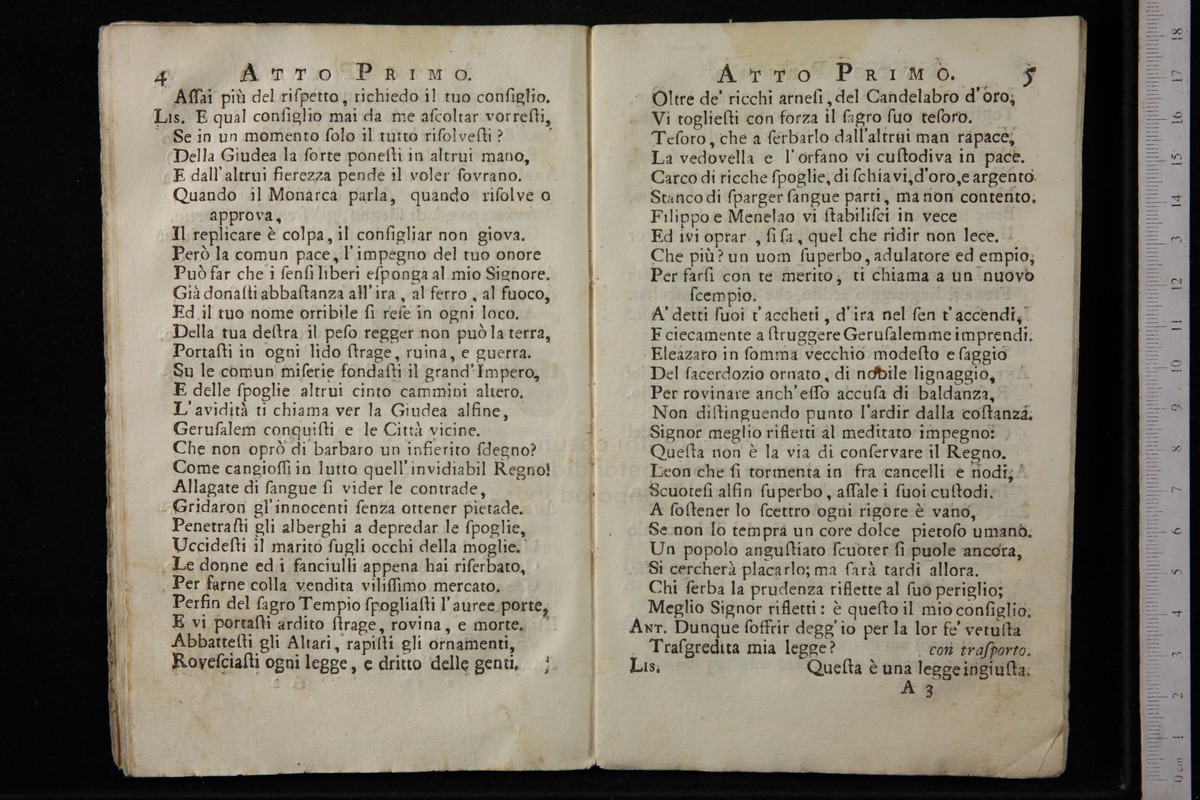 4 ATTO PRIMO.
Aſſai più del riſpetto, richiedo il tuo conſiglio.
LIS. E qual conſiglio mai da me aſcoltar vorreſti,
Se in un momento ſolo il tutto riſolveſti?
Della Giudea la ſorte poneſti in altrui mano,
E dall'altrui fierezza pende il voler ſovrano.
Quando il Monarca parla, quando riſolve o
approva,
Il replicare è colpa, il conſigliar non giova.
Però la comun pace, l'impegno del tuo onore
Può far che i ſenſi liberi eſponga al mio Signore.
Già donaſti abbaſtanza all'ira, al ferro, al fuoco,
Ed il tuo nome orribile ſi reſe in ogni loco.
Della tua deſtra il peſo regger non può la terra,
Portaſti in ogni lido ſtrage, ruina, e guerra.
Su le comun miſerie fondaſti il grand'Impero,
E delle ſpoglie altrui cinto cammini altero.
L'avidità ti chiama ver la Giudea alfine,
Geruſalem conquiſti e le Città vicine.
Che non oprò di barbaro un infierito ſdegno?
Come cangioſſi in lutto quell'invidiabil Regno!
Allagate di ſangue ſi vider le contrade,
Gridaron gl'innocenti ſenza ottener pietade.
Penetraſti gli alberghi a depredar le ſpoglie,
Uccideſti il marito ſugli occhi della moglie.
Le donne ed i fanciulli appena hai riſerbato,
Per farne colla vendita viliſſimo mercato.
Perfin del ſagro Tempio ſpogliaſti l'auree porte,
E vi portaſti ardito ſtrage, rovina, e morte.
Abbatteſti gli Altari, rapiſti gli ornamenti,
Roveſciaſti ogni legge, e dritto delle genti.
ATTO PRIMO. 5
Oltre de' ricchi arneſi, del Candelabro d'oro,
Vi toglieſti con forza il ſagro ſuo teſoro.
Teſoro, che a ſerbarlo dall'altrui man rapace,
La vedovella e l'orfano vi cuſtodiva in pace.
Carco di ricche ſpoglie, di ſchiavi, d'oro, e argento
Stanco di ſparger ſangue parti, ma non contento.
Filippo e Menelao vi ſtabiliſci in vece
Ed ivi oprar, ſi ſa, quel che ridir non lece.
Che più? un uom ſuperbo, adulatore ed empio,
Per farſi con te merito, ti chiama a un nuovo
ſcempio.
A' detti ſuoi t'accheti, d'ira nel ſen t'accendi,
E ciecamente a ſtruggere Geruſalemme imprendi.
Eleazaro in ſomma vecchio modeſto e ſaggio
Del ſacerdozio ornato, di nobile lignaggio,
Per rovinare anch'eſſo accuſa di baldanza,
Non diſtinguendo punto l'ardir dalla coſtanza.
Signor meglio rifletti al meditato impegno:
Queſta non è la via di conſervare il Regno.
Leon che ſi tormenta in fra cancelli e nodi,
Scuoteſi alfin ſuperbo, aſſale i ſuoi cuſtodi.
A ſoſtener lo ſcettro ogni rigore è vano,
Se non lo tempra un core dolce pietoſo umano.
Un popolo anguſtiato ſcuoter ſi puole ancora,
Si cercherà placarlo; ma ſarà tardi allora.
Chi ſerba la prudenza riflette al ſuo periglio;
Meglio Signor rifletti: è queſto il mio conſiglio.
ANT. Dunque ſoffrir degg'io per la lor fe' vetuſta
Traſgredita mia legge? con traſporto.
LIS. Queſta è una legge ingiuſta.
A 3
0 cm 1 2 3 4 5 6 7 8 9 10 11 12 13 14 15 16 17 18